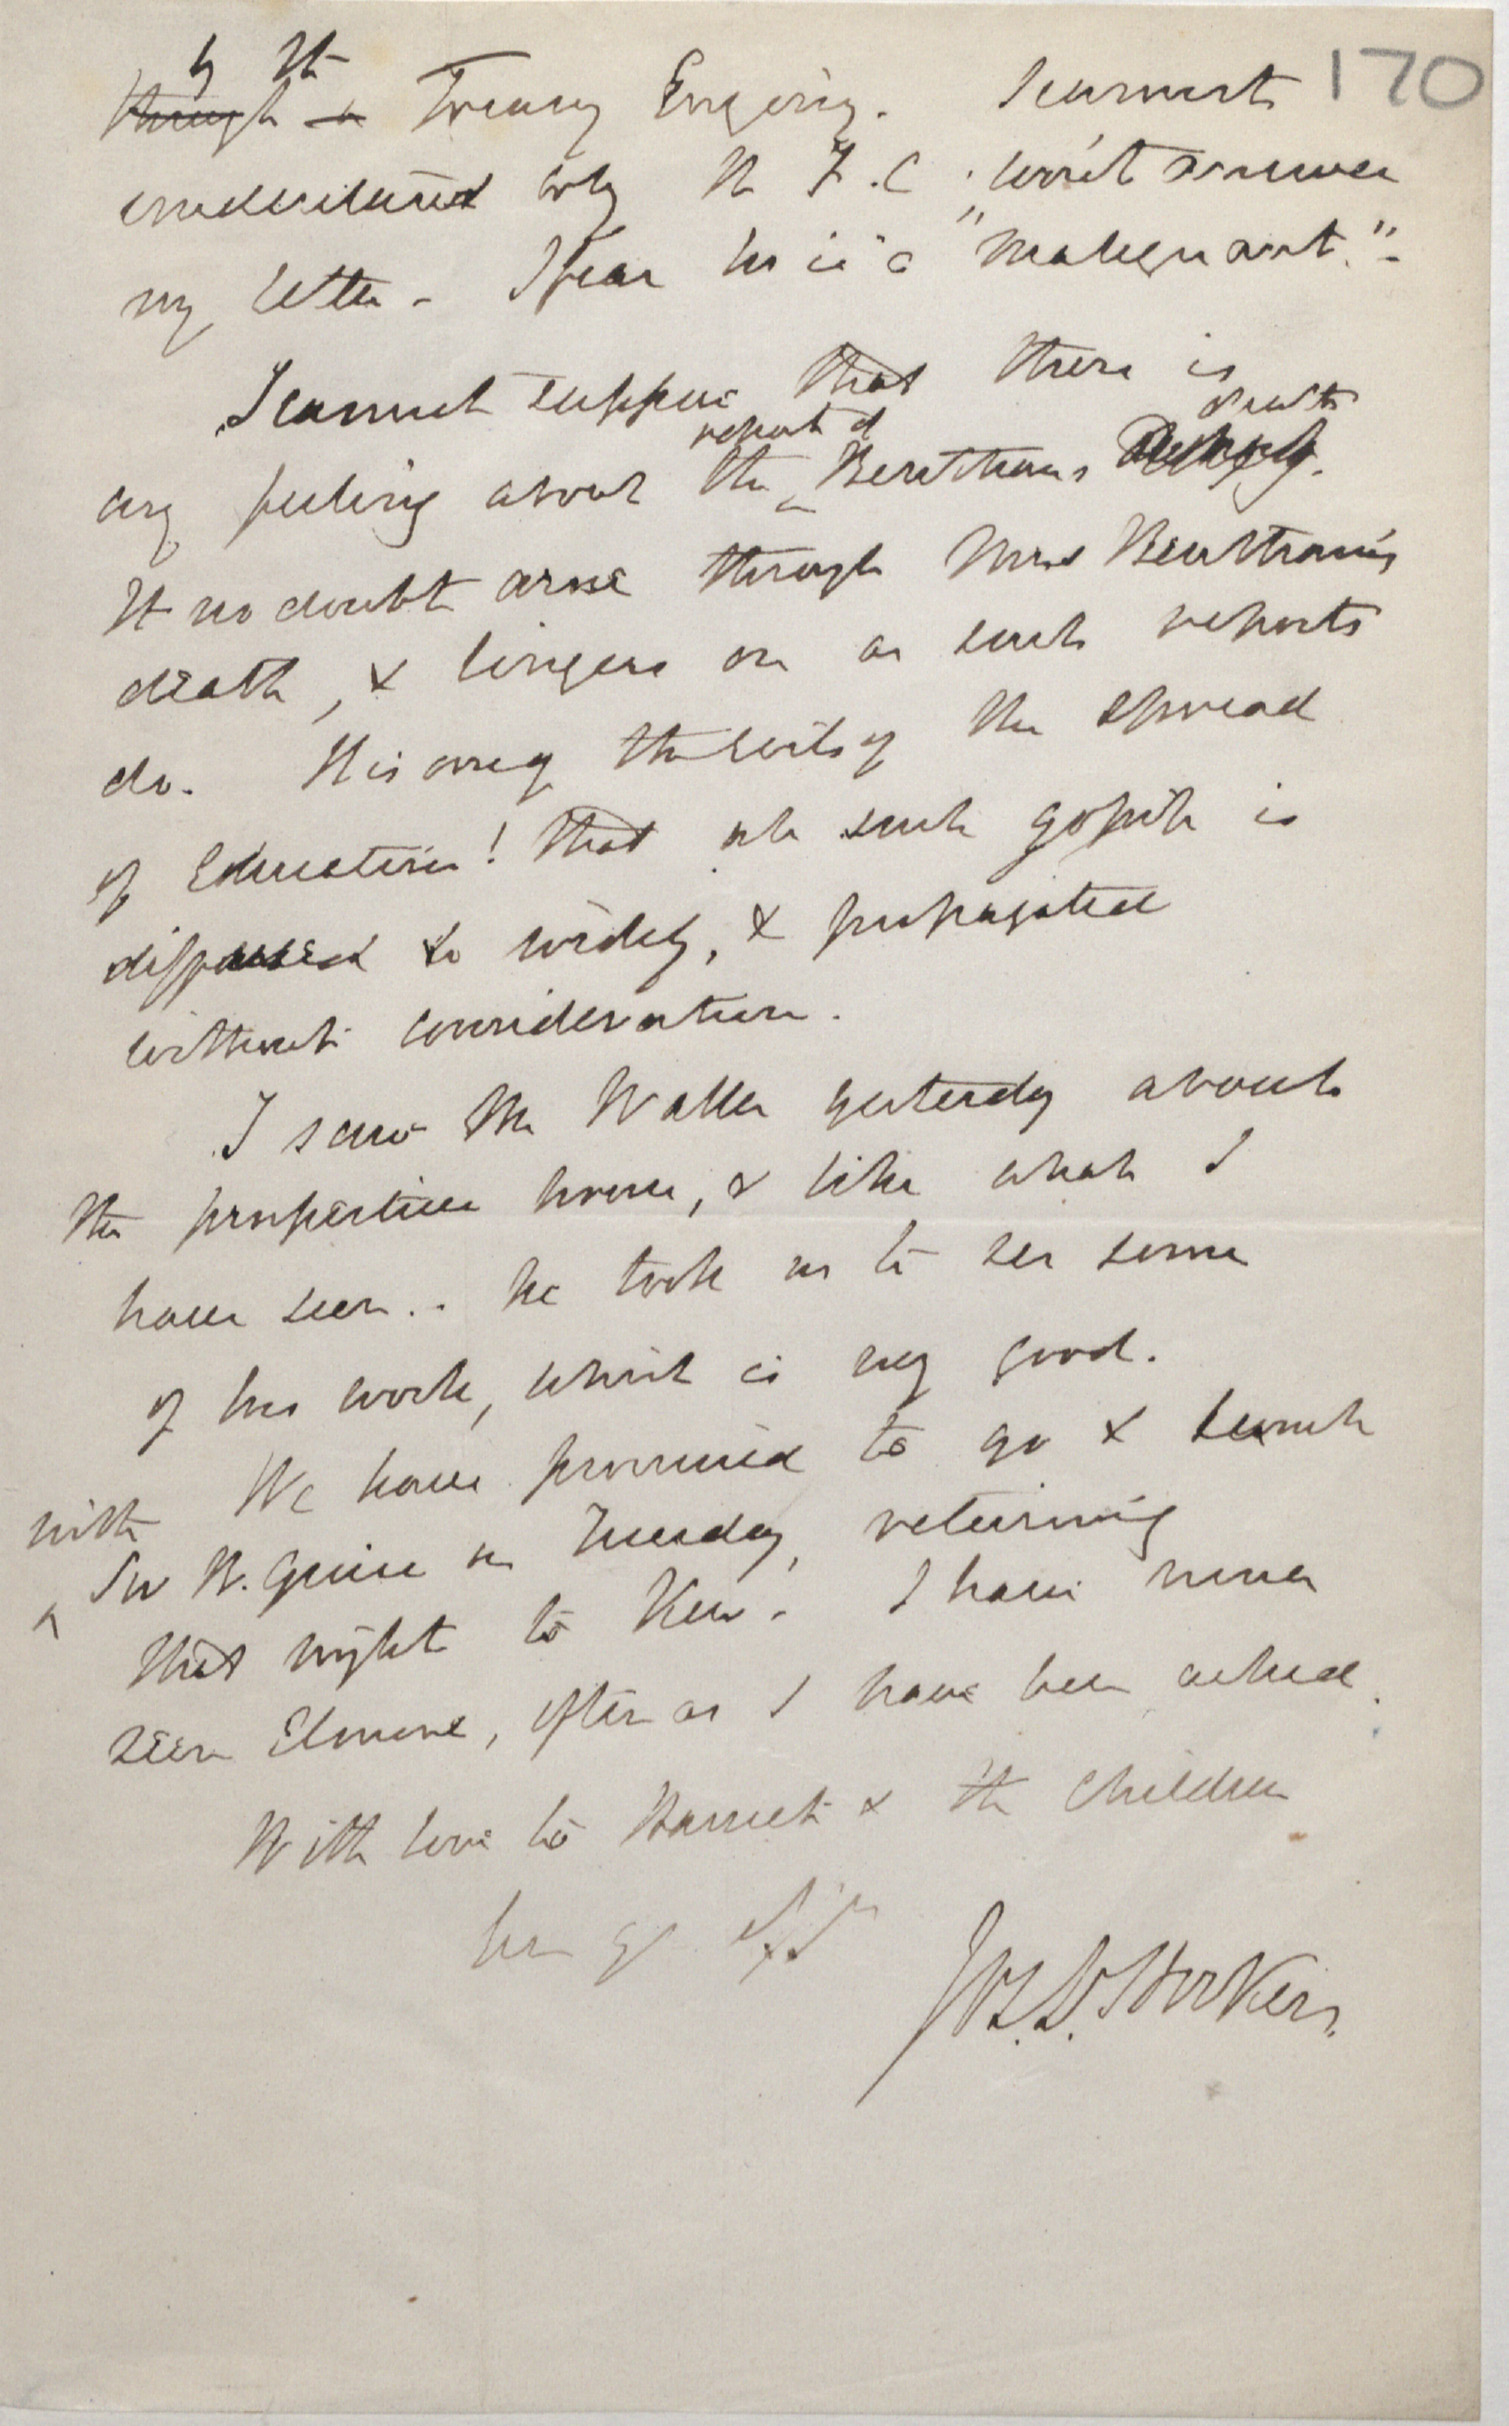 170
by the
through a Treasury Enquiry. I cannot
understand why the F.C. won't answer
my letter. I fear he is a "malignant."
I cannot suppose that there is
report of death
any feeling about the Bentham's
It no doubt arose through Mrs Bentham's
death, & lingers on as such reports
do. It is one of the evils of the spread
of Education! that all such gossip is
diffused so widely, & propagated
without consideration.
I saw Mr Waller yesterday about
the properties house, & like what I
have seen.. he took us to see some
of his work, which is very good.
We have promised to go & lunch
with
Sir W. Guise on Tuesday, returning
that night to Kew. I have never
seen Elmore, often as I have been asked.
With love to Harriet & the children
Jos. D. Hooker.